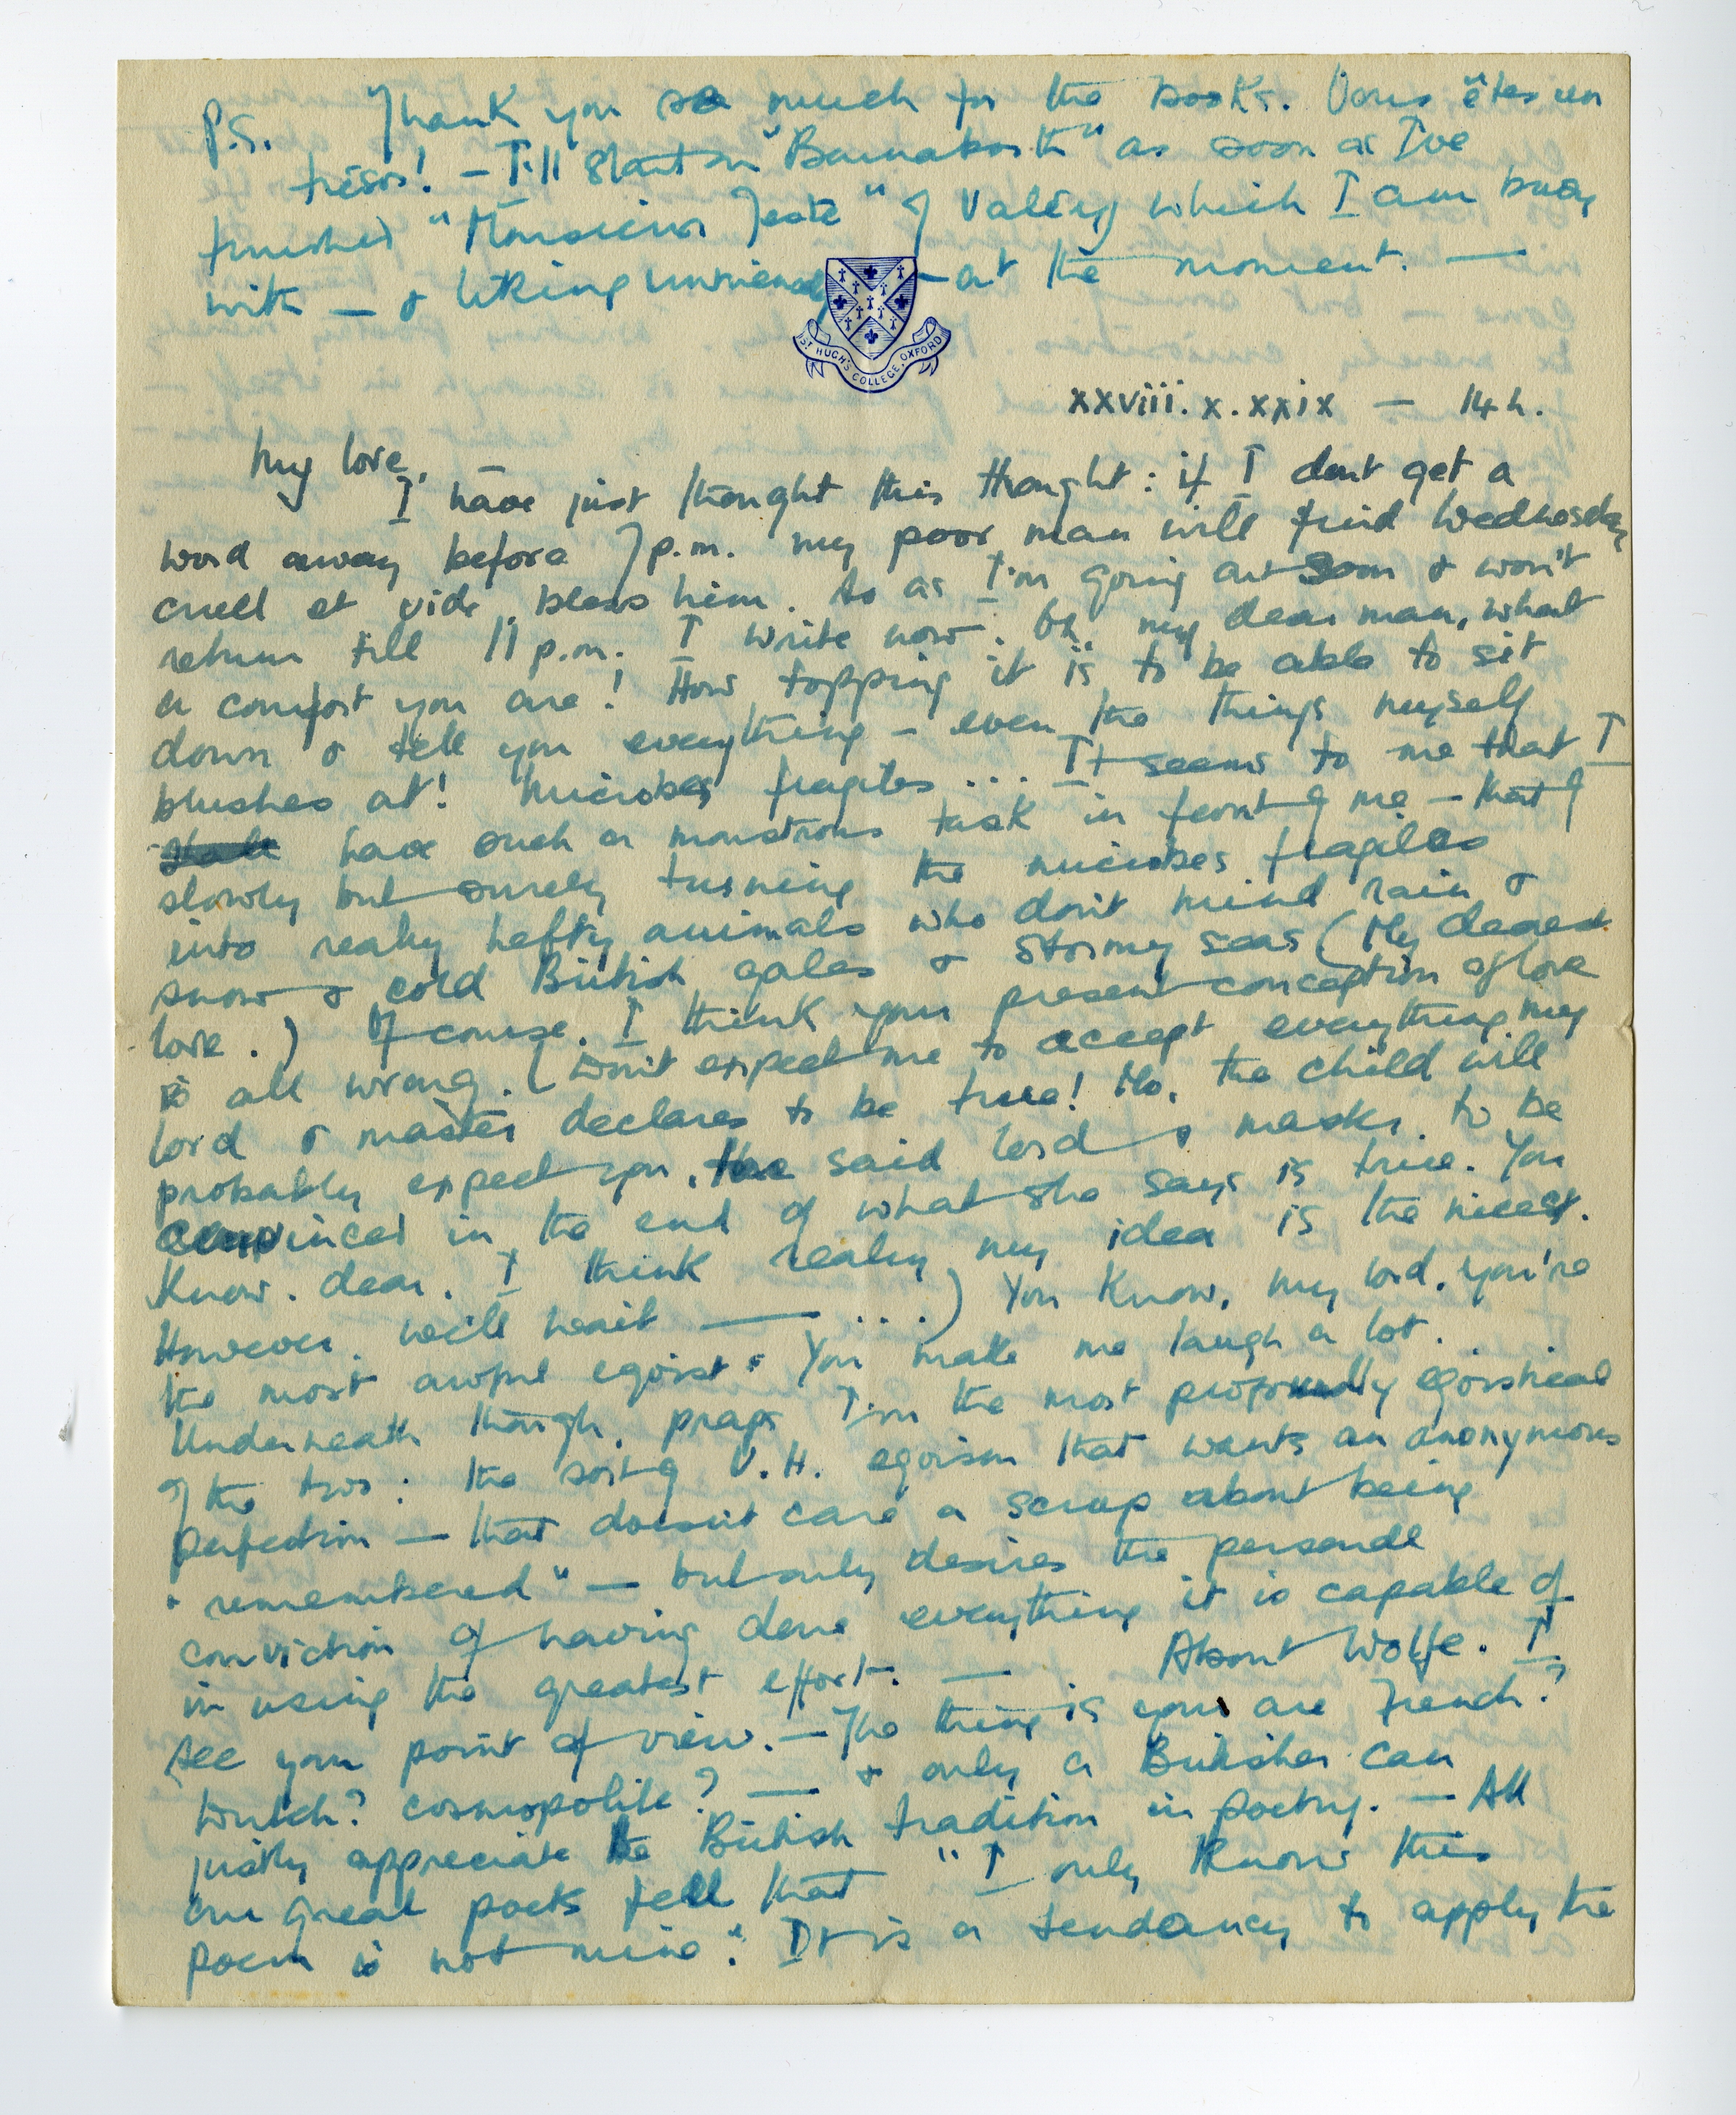 P.S. Thank you so much for the books. Vous êtes un
trésor! – I'll start on "Barnabooth" as soon as I've
finished "Monsieur Teste" of Valéry which I am busy
with — & liking immensely — at the moment. —
ST HUGH'S COLLEGE, OXFORD
xxviii. x. xxix — 14 h.
My love,
I have just thought this thought: if I don't get a
word away before 7 p.m. my poor man will find Wednesday
cruel et vide, bless him. So as I'm going out soon & won't
return till 11 p.m. I write now. Oh, my dear man, what
a comfort you are! How topping it is to be able to sit
down & tell you everything – even the things myself
blushes at! Microbes fragiles ... It seems to me that I
have such a monstrous task in front of me – that of
slowly but surely turning the microbes fragiles
into really hefty animals who don't mind rain &
snow & cold British gales & stormy seas (My dearest
love.) Of course, I think your present conception of love
is all wrong. (Don't expect me to accept everything my
lord & master declares to be true! No, the child will
probably expect you, the said lord & master, to be
convinced in the end of what she says is true. You
know, dear, I think really my idea is the nicest.
However, we'll wait — ...) You know, my lord, you're
the most awful egoist. You make me laugh a lot.
Underneath though, praps I'm the most profoundly egoistical
of the two: the sort of V.H. egoism that wants an anonymous
perfection — that doesn't care a scrap about being
"remembered" — but only desires the personal
conviction of having done everything it is capable of
in using the greatest effort. — About Wolfe. I
see your point of view. — The thing is you are French?
Dutch? cosmopolite? — & only a Britisher can
justly appreciate the British tradition in poetry. — All
our great poets feel that "I only know this
poem is not mine". It is a tendancy to apply the